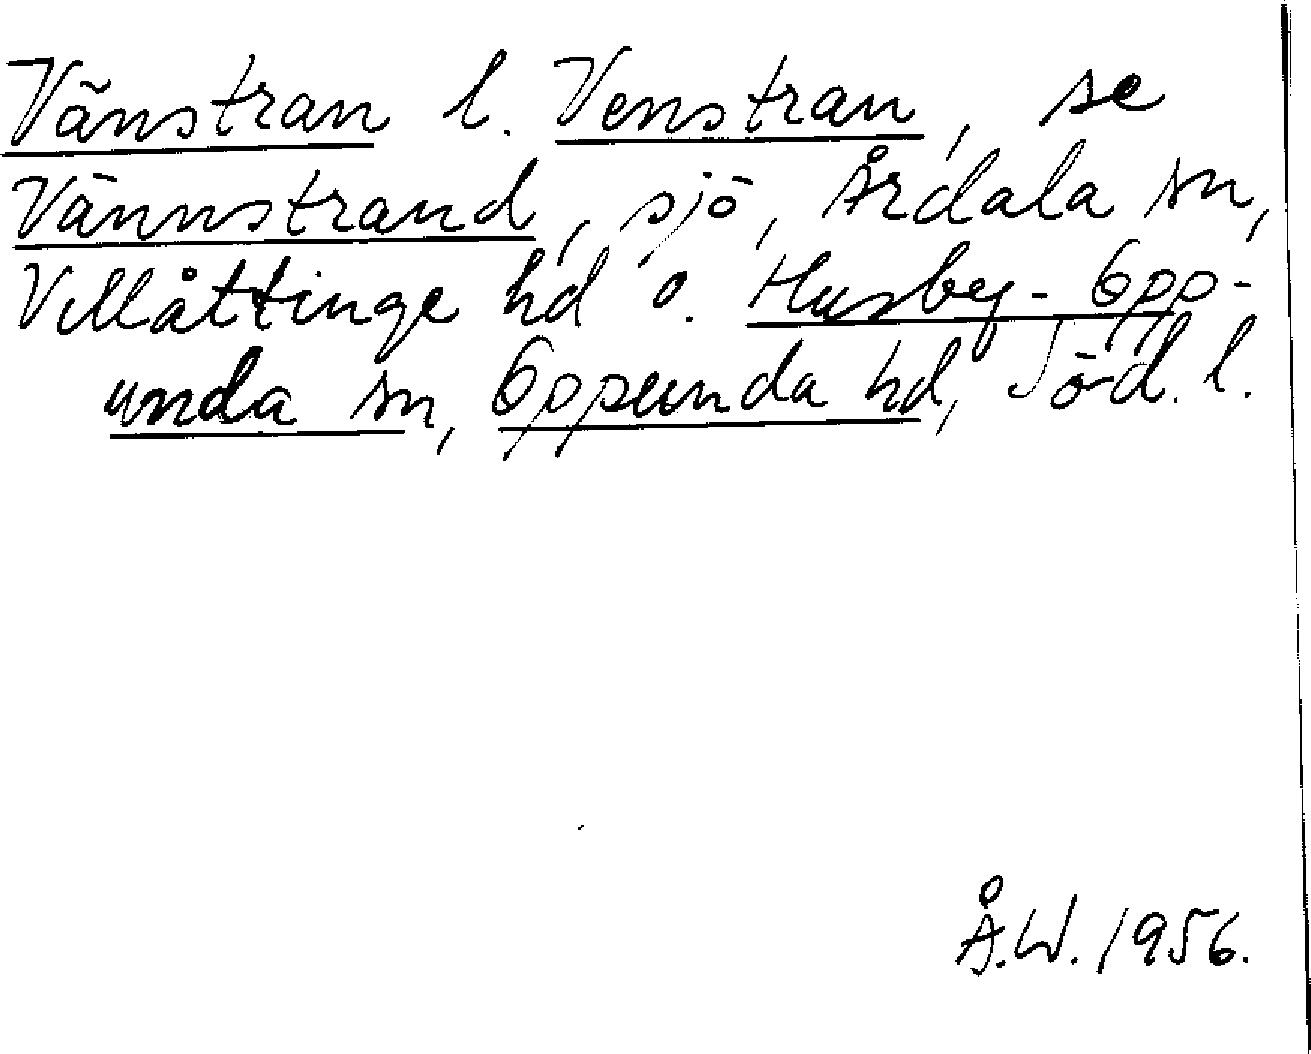 Vänstran l. Venstran, se
Vännstrand, sjö, Årdala sn,
Villåttinge hd o. Husby-Opp-
unda sn, Oppunda hd, Söd. l.
Å.W. 1956.